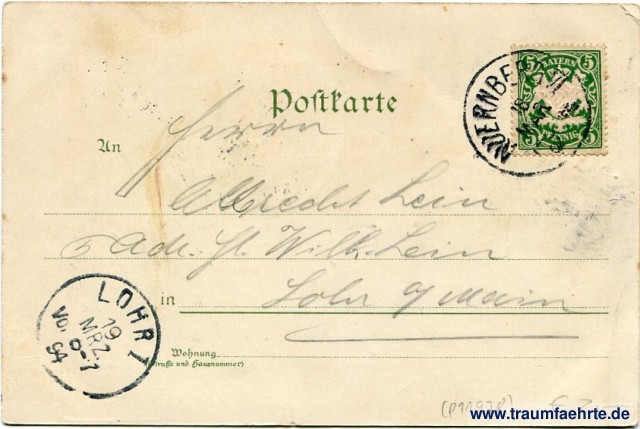 5 BAYERN 5
PFENNIG
NUERNBERG
Postkarte
An Herrn
Albrecht Lein
Adr. H. Wilh. Lein
in Lohr a/Main
LOHR I
19
MRZ
94
Wohnung
(Straße und Hausnummer)
(P11978)
www.traumfaehrte.de